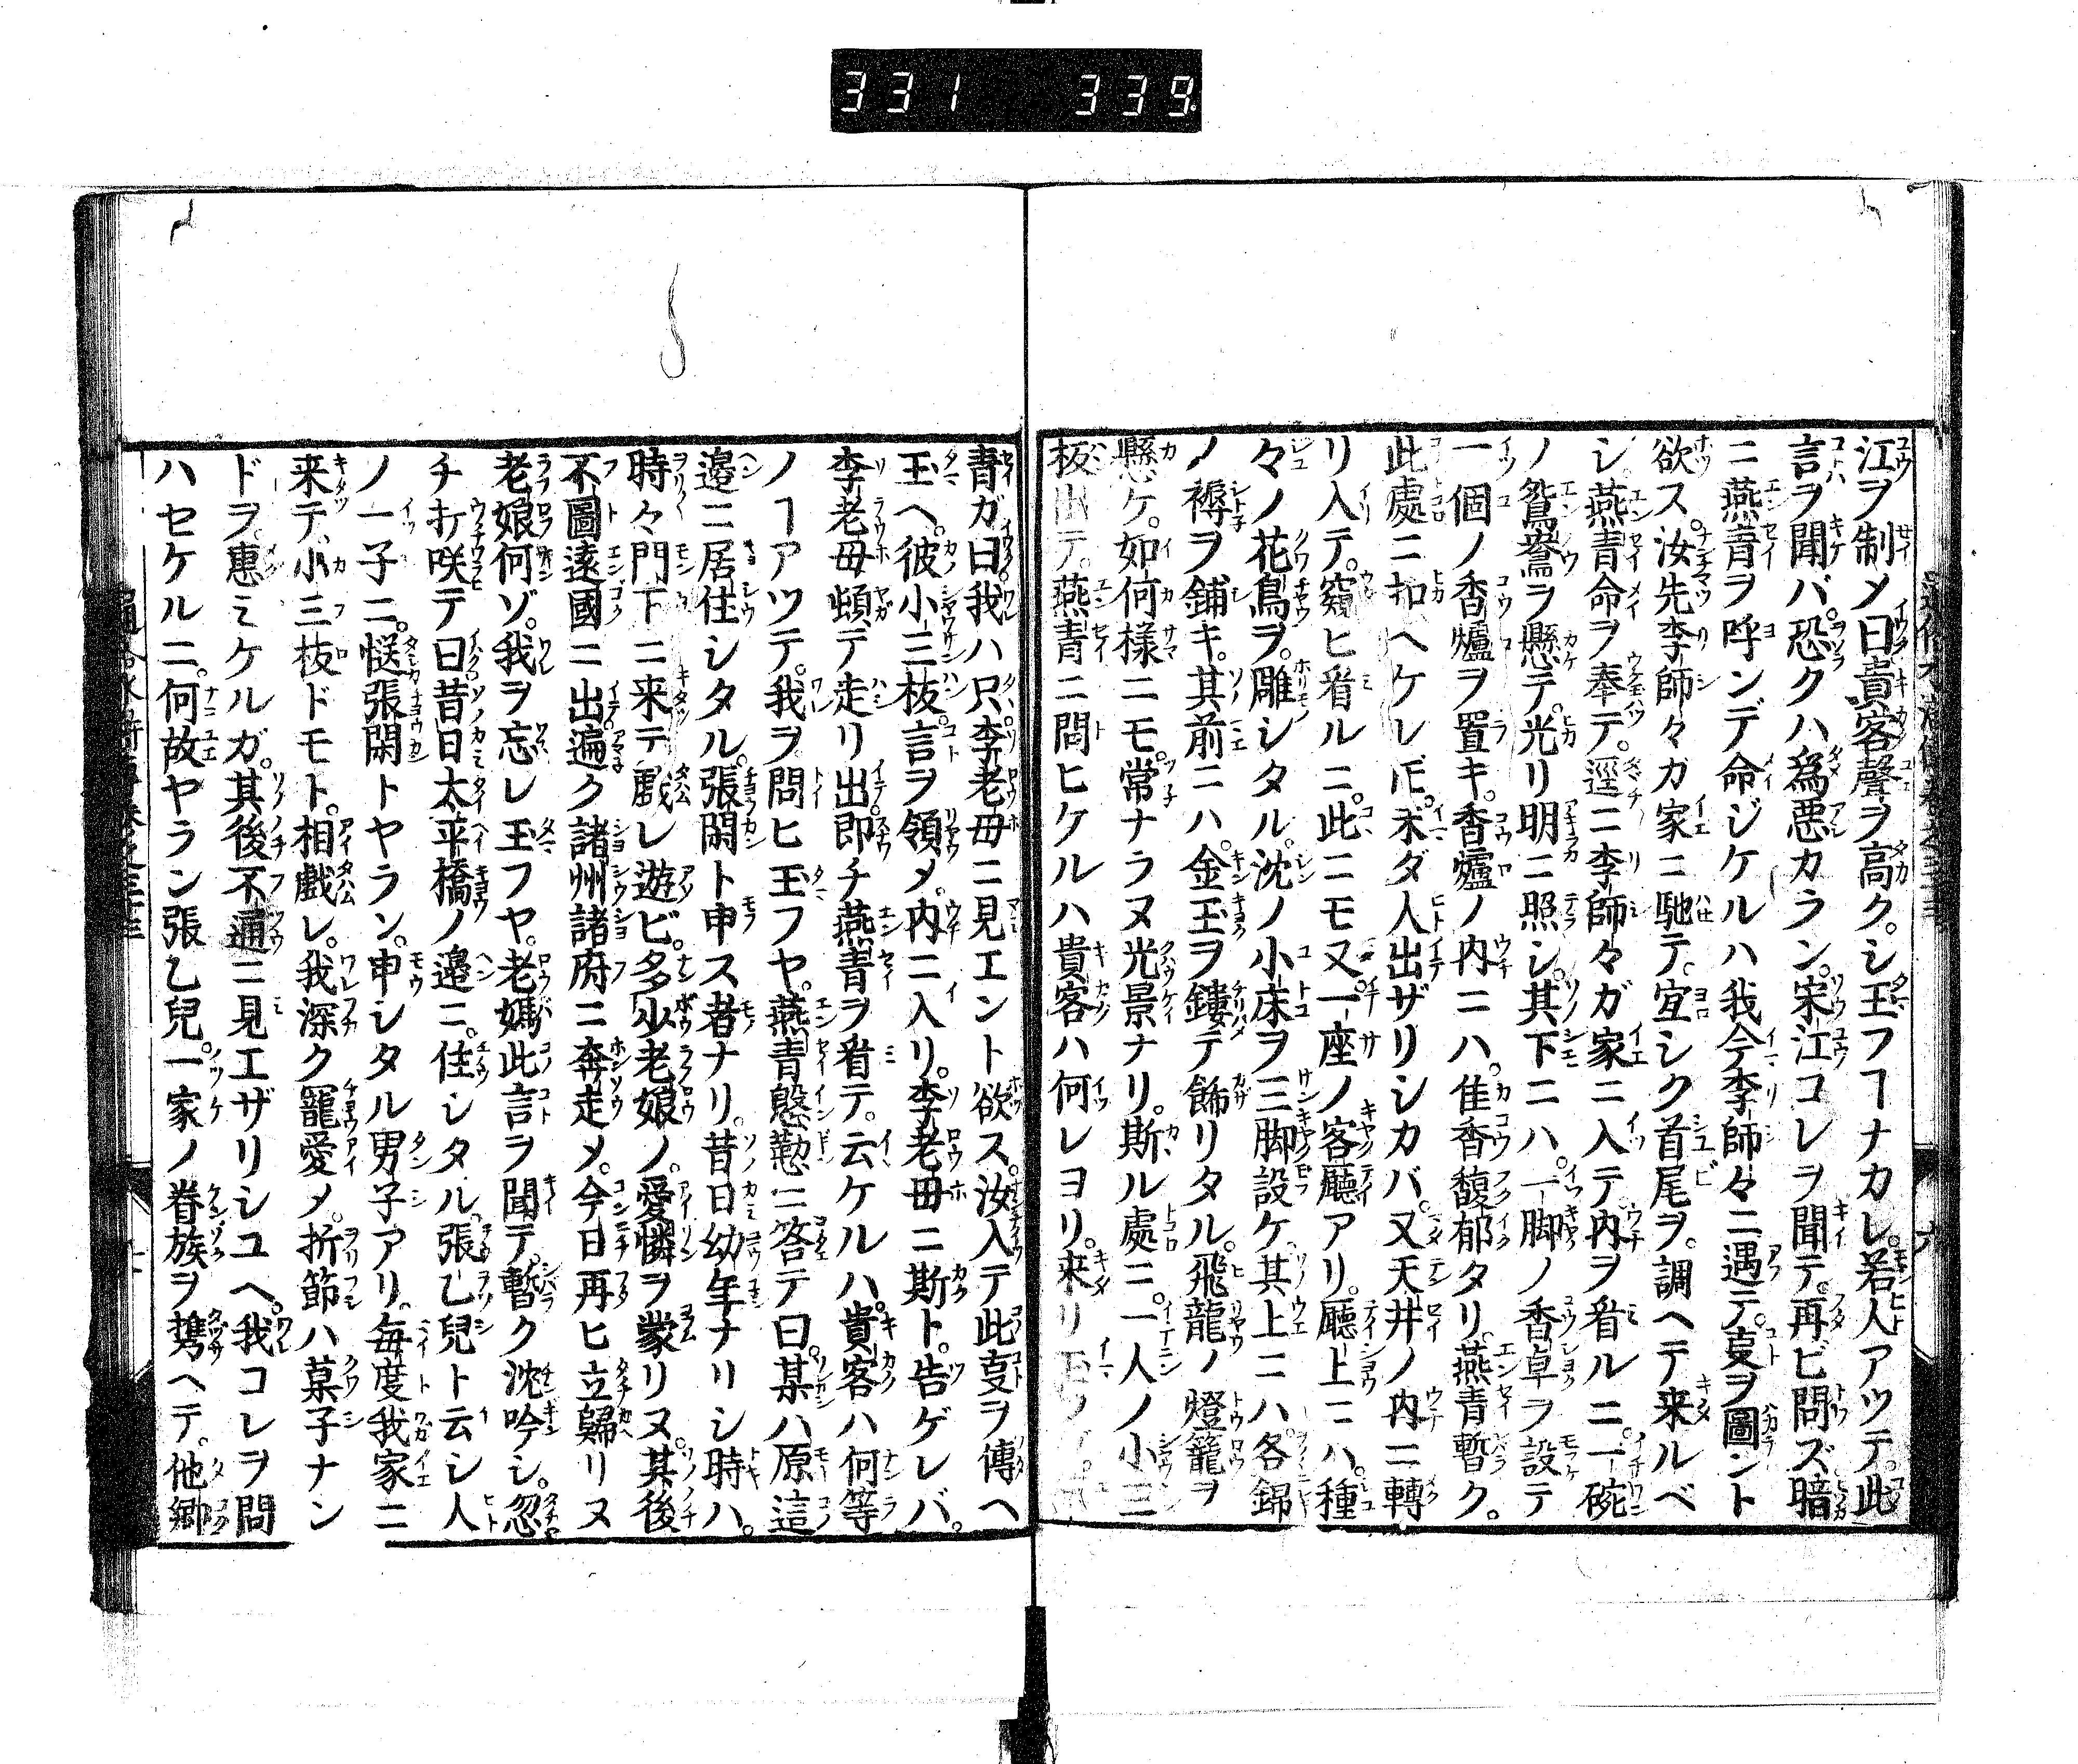 331 339
江ヲ制メ曰貴客聲ヲ高ク。シ玉フヿナカレ。若人アツテ。此
言ヲ聞バ。恐クハ爲惡カラン。宋江コレヲ聞テ。再ビ問ズ暗
ニ燕青ヲ呼ンデ命ジケルハ我今李師々ニ遇テ。叓ヲ圖ント
欲ス。汝先李師々カ家ニ馳テ。宜シク首尾ヲ。調ヘテ来ルベ
シ。燕青命ヲ奉テ。逕ニ李師々ガ家ニ入テ内ヲ看ルニ。一碗
ノ鴛鴦ヲ懸テ。光リ明ニ照シ。其下ニハ。一脚ノ香卓ヲ設テ
一個ノ香爐ヲ置キ。香爐ノ内ニハ。佳香馥郁タリ。燕青暫ク。
此處ニ扣ヘケレ𪜈。未ダ人出ザリシカバ。又天井ノ内ニ轉
リ入テ。窺ヒ看ルニ。此ニモ又一座ノ客廳アリ。廳上ニハ。種
々ノ花鳥ヲ。雕シタル。沈ノ小床ヲ三脚設ケ。其上ニハ。各錦
ノ褥ヲ鋪キ。其前ニハ。金玉ヲ鏤テ飾リタル。飛龍ノ燈籠ヲ
懸ケ。如何様ニモ。常ナラヌ光景ナリ。斯ル處ニ。一人ノ小三
板出テ。燕青ニ問ヒケルハ貴客ハ何レヨリ。来リ玉
青ガ曰我ハ只李老母ニ見エント欲ス。汝入テ此叓ヲ傳ヘ
玉ヘ。彼小三板言ヲ領メ。内ニ入リ。李老母ニ斯ト。告ゲレバ。
李老母頓テ走リ出即チ燕青ヲ看テ。云ケルハ。貴客ハ何等
ノヿアツテ。我ヲ問ヒ玉フヤ。燕青慇懃ニ答テ曰。某ハ原這
邉ニ居住シタル。張閑ト申ス者ナリ。昔日幼年ナリシ時ハ。
時々門下ニ来テ戲レ遊ビ。多少老娘ノ。愛憐ヲ蒙リヌ。其後
不圖遠國ニ出遍ク諸州諸府ニ奔走メ。今日再ヒ立歸リヌ
老娘何ゾ。我ヲ忘レ玉フヤ。老媽此言ヲ聞テ。暫ク沈吟シ。忽
チ打咲テ曰昔日太平橋ノ邉ニ。住シタル。張乙兒ト云シ人
ノ一子ニ。慥張閑トヤラン。申シタル男子アリ。毎度我家ニ
来テ、小三板ドモト。相戲レ。我深ク寵愛メ。折節ハ菓子ナン
ドヲ。惠ミケルガ。其後不通ニ見エザリシユヘ。我コレヲ問
ハセケルニ。何故ヤラン張乙兒。一家ノ眷族ヲ携ヘテ。他郷